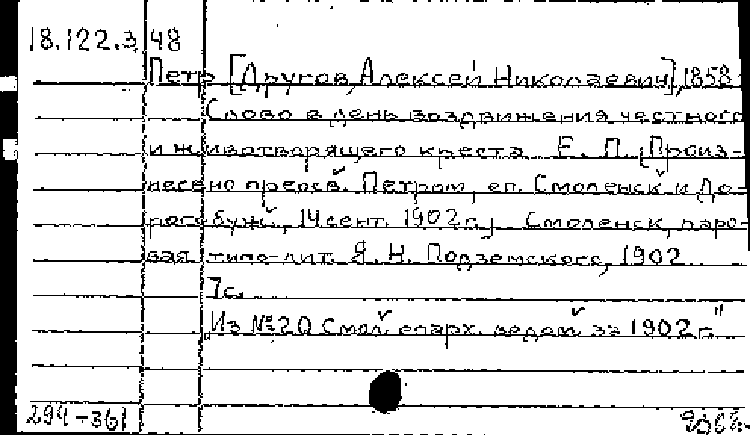 18.122.3.48
Петр [Другов, Алексей Николаевич], 1858-
Слово в день воздвижения честного
и животворящего креста. Е. П. [Произ-
несено преосв. Петром, еп. Смоленск. и До-
рогобуж., 14 сент. 1902 г.]. Смоленск, паро-
вая типо-лит. Я. Н. Подземского, 1902.
7с.
Из № 20 Смол. епарх. ведом. за 1902 г."
294-361